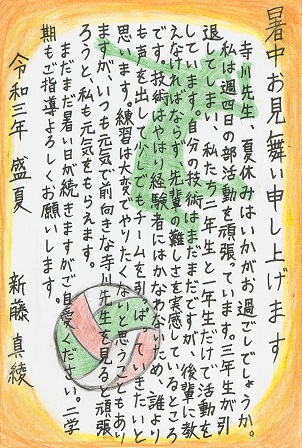 暑中お見舞い申し上げます
寺川先生、夏休みはいかがお過ごしでしょうか。
私は週四日の部活動を頑張っています。三年生が引
退してしまい、私たち二年生と一年生だけで活動を
しています。自分の技術はまだまだですが、後輩に教
えなければならず、先輩の難しさを実感しているところ
です。技術はやはり経験者にはかなわないため、誰より
も声を出し、少しでもチームを引っぱっていきたいと
思います。練習は大変でやりたくないと思うこともあり
ますが、いつも元気で前向きな寺川先生を見ると頑張
ろうと、私も元気をもらえます。
まだまだ暑い日が続きますがご自愛ください。二学
期もご指導よろしくお願いします。
令和三年 盛夏
新藤 真綾